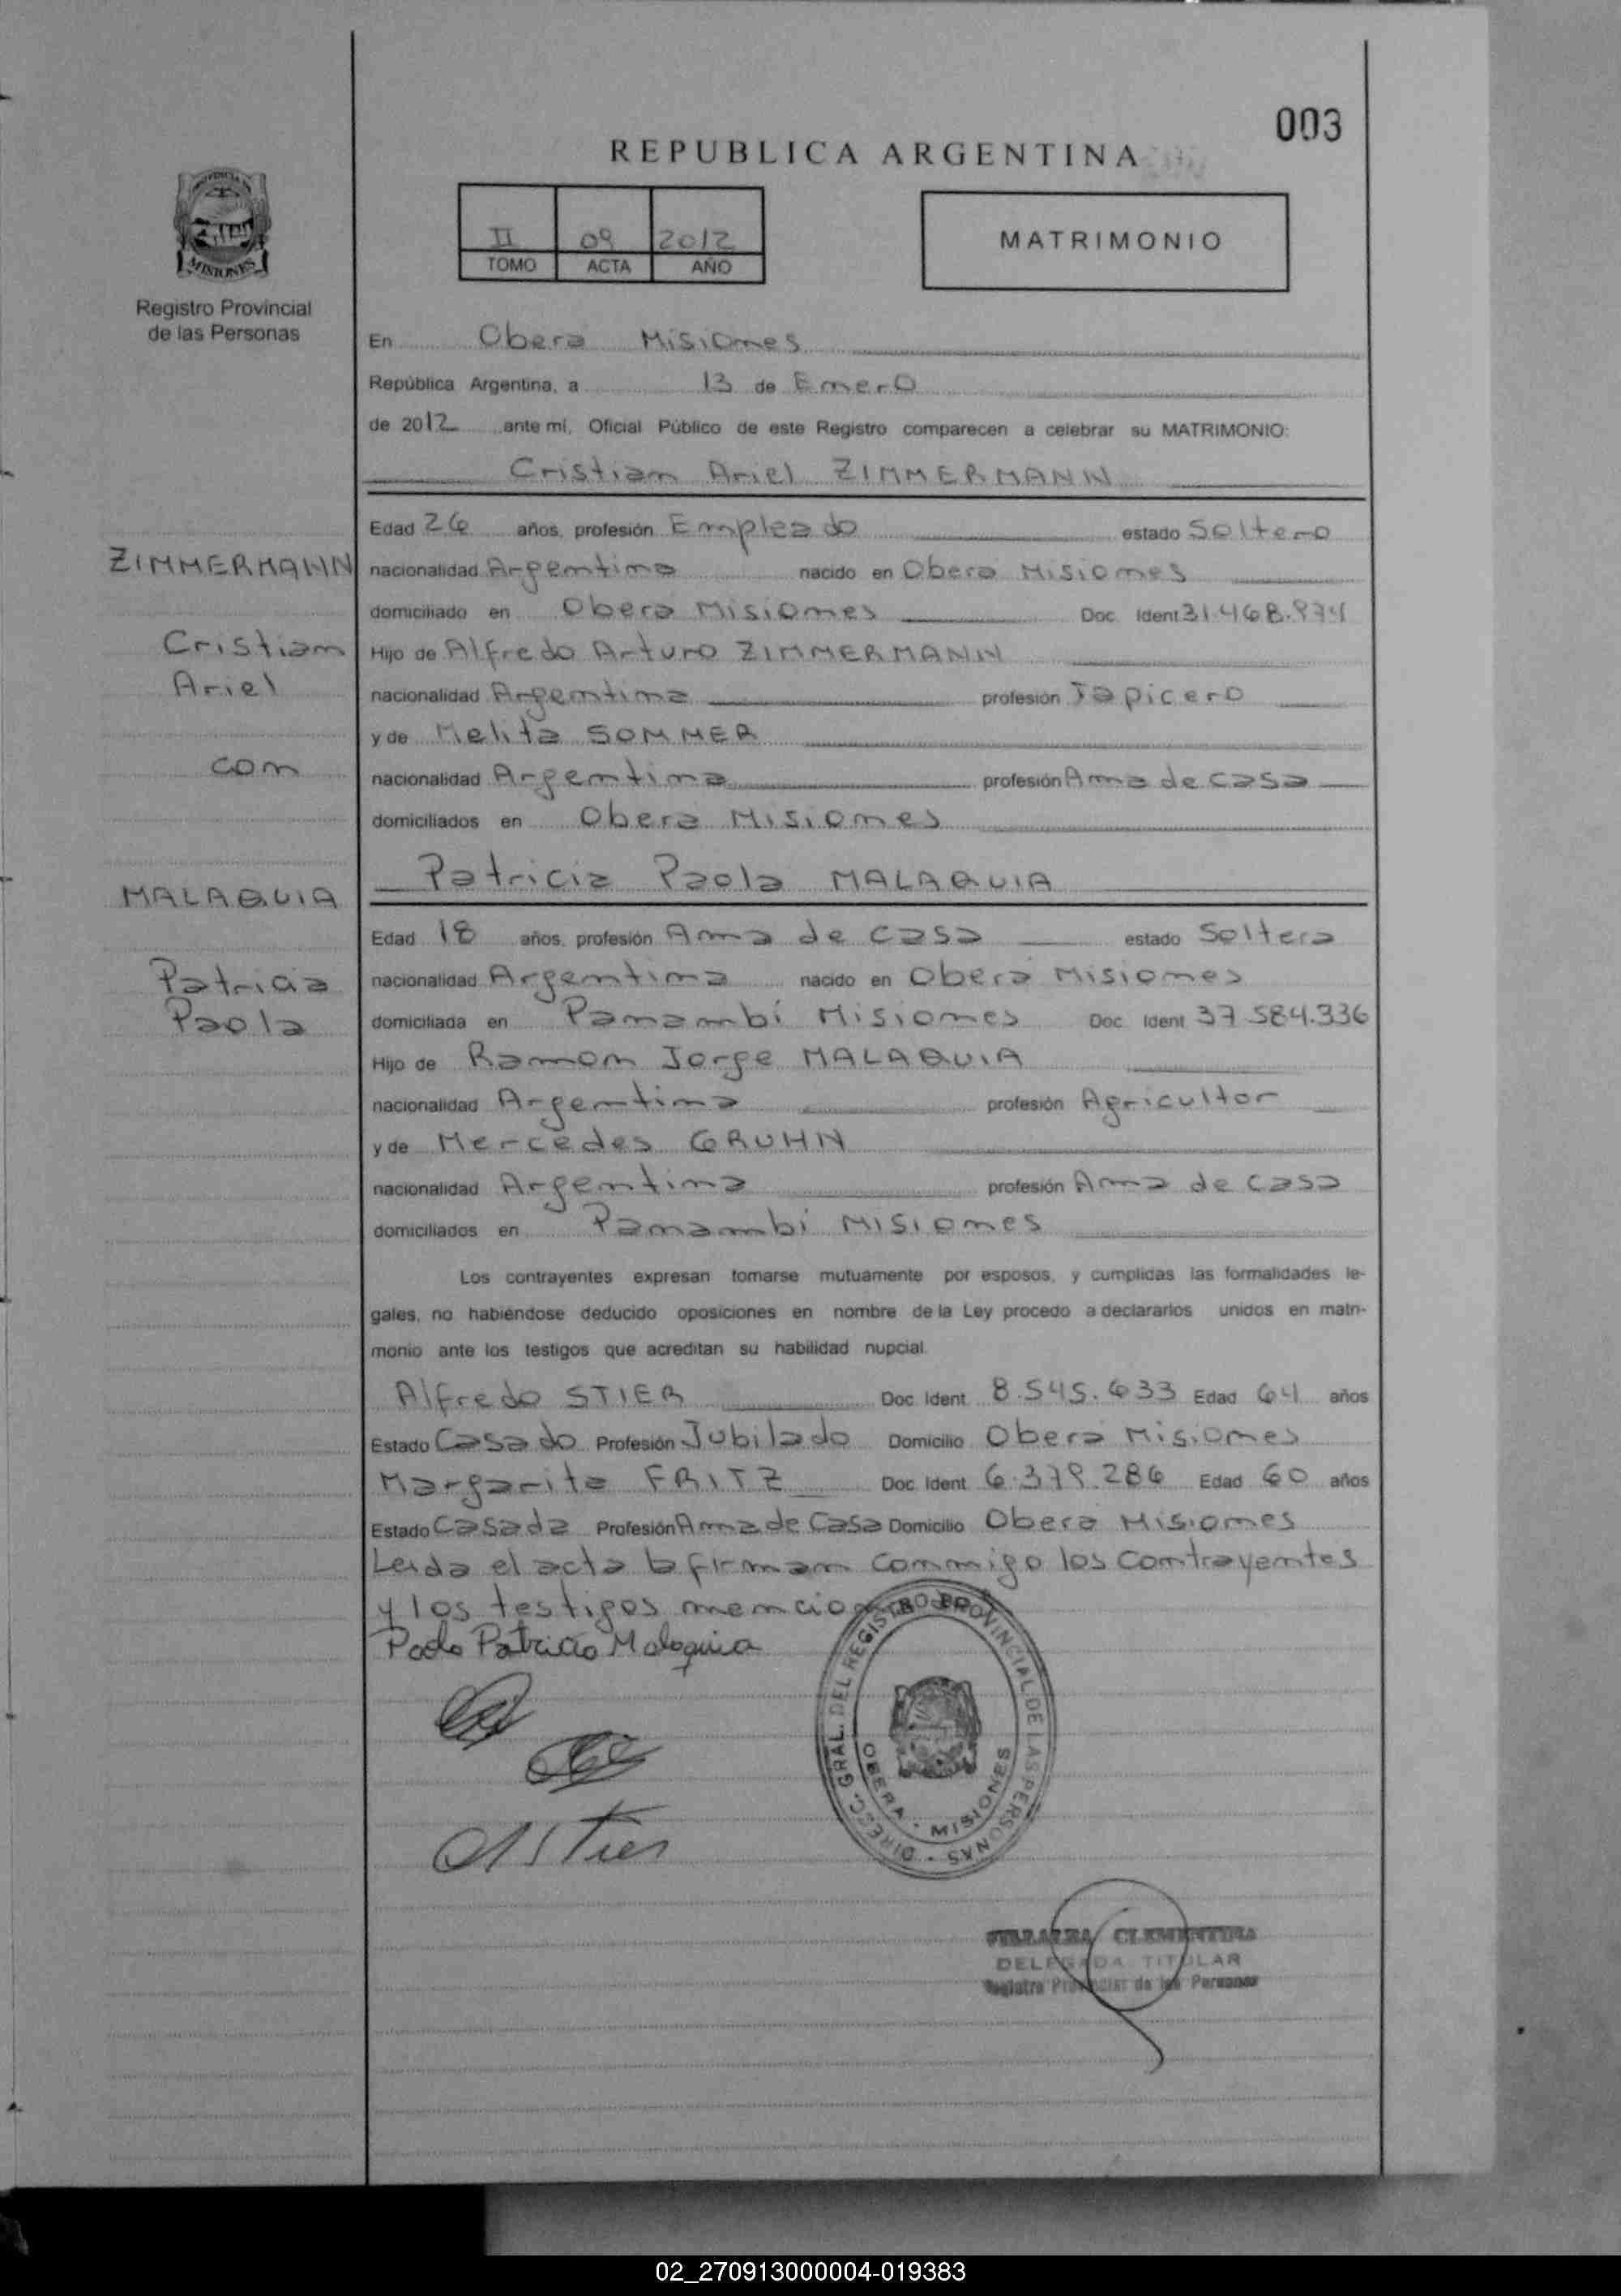 003
REPUBLICA ARGENTINA
II 09 2012
TOMO ACTA AÑO
MATRIMONIO
MISIONES
Registro Provincial
de las Personas
En Obera Misiones
República Argentina, a 13 de Enero
de 2012 ante mí, Oficial Público de este Registro comparecen a celebrar su MATRIMONIO:
Cristian Ariel ZIMMERMANN
Edad 26 años, profesión Empleado estado Soltero
ZIMMERMANN
nacionalidad Argentina nacido en Obera Misiones
domiciliado en Obera Misiones Doc. Ident 31.468.974
Cristian
Hijo de Alfredo Arturo ZIMMERMANN
Ariel
nacionalidad Argentina profesión Tapicero
y de Melita SOMMER
con
nacionalidad Argentina profesión Ama de casa
domiciliados en Obera Misiones
Patricia Paola MALAQUIA
MALAQUIA
Edad 18 años, profesión Ama de casa estado Soltera
Patricia
nacionalidad Argentina nacido en Obera Misiones
Paola
domiciliada en Panambí Misiones Doc. Ident 37.584.336
Hijo de Ramon Jorge MALAQUIA
nacionalidad Argentina profesión Agricultor
y de Mercedes GRUHN
nacionalidad Argentina profesión Ama de casa
domiciliados en Panambí Misiones
Los contrayentes expresan tomarse mutuamente por esposos, y cumplidas las formalidades le-
gales, no habiéndose deducido oposiciones en nombre de la Ley procedo a declararlos unidos en matri-
monio ante los testigos que acreditan su habilidad nupcial.
Alfredo STIER Doc. Ident. 8.545.633 Edad 64 años
Estado Casado Profesión Jubilado Domicilio Obera Misiones
Margarita FRITZ Doc. Ident. 6.379.286 Edad 60 años
Estado Casada Profesión Ama de Casa Domicilio Obera Misiones
Leida el acta la firman conmigo los contrayentes
y los testigos
Paola Patricia Malaquia
DIRECC. GRAL. DEL REGISTRO PROVINCIAL DE LAS PERSONAS
OBERA - MISIONES
A Stier
CLEMENTINA
DELEGADA TITULAR
Registro Provincial de las Personas
02_270913000004-019383